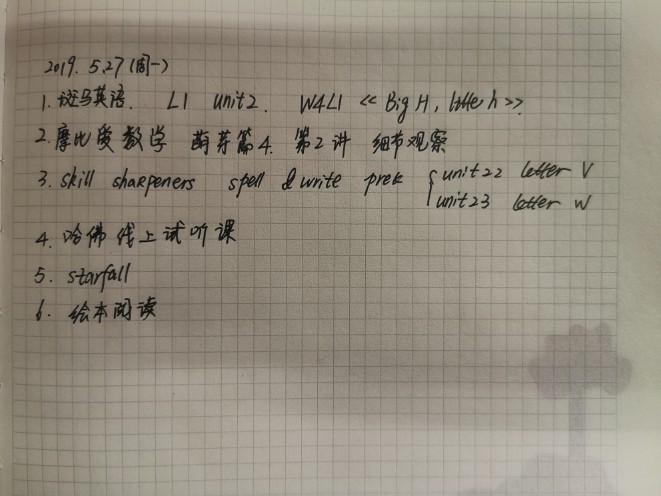 2019. 5.27 (周一)
1. 斑马英语. L1 unit2. W4L1 << Big H, little h >>.
2. 摩比爱数学 萌芽篇4. 第2讲 细节观察
3. skill sharpeners spell & write prek { unit22 letter V
unit23 letter W
4. 哈佛线上试听课
5. starfall
6. 绘本阅读